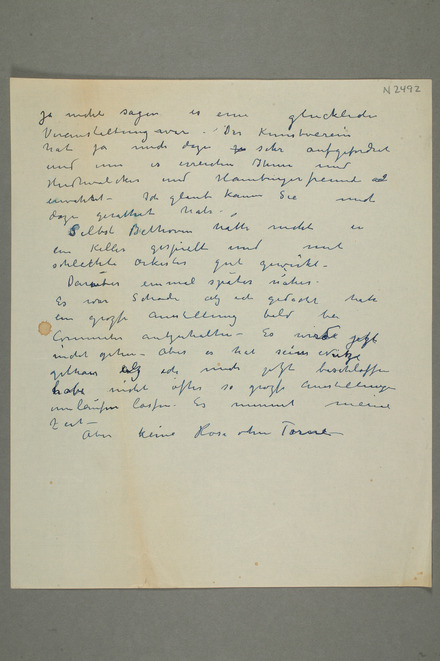 N 2492
ja nicht sagen es eine glückliche
Veranstaltung war. Der Kunstverein
hat ja mich dazu sehr aufgefordert
und um es erreichen Ihnen und
und Hamburger freund
Ich glaub kaum Sie mich
dazu hat.
Selbst Bethoven hätte nicht in
ein Keller gespielt und mit
schlechte Orkester gut gewirkt.
Darüber einmal später näher.
Es war Schade als ich gedacht hate
ein grosse Ausstellung bald bei
Commeter Es jetzt
nicht gehen. Aber es hat sein
gethan als ich mich jetzt beschlossen
habe nicht öfter so grosse Ausstellungen
laufen lassen. Es nimmt meine
Zeit.
Aber keine Rose ohne Torne